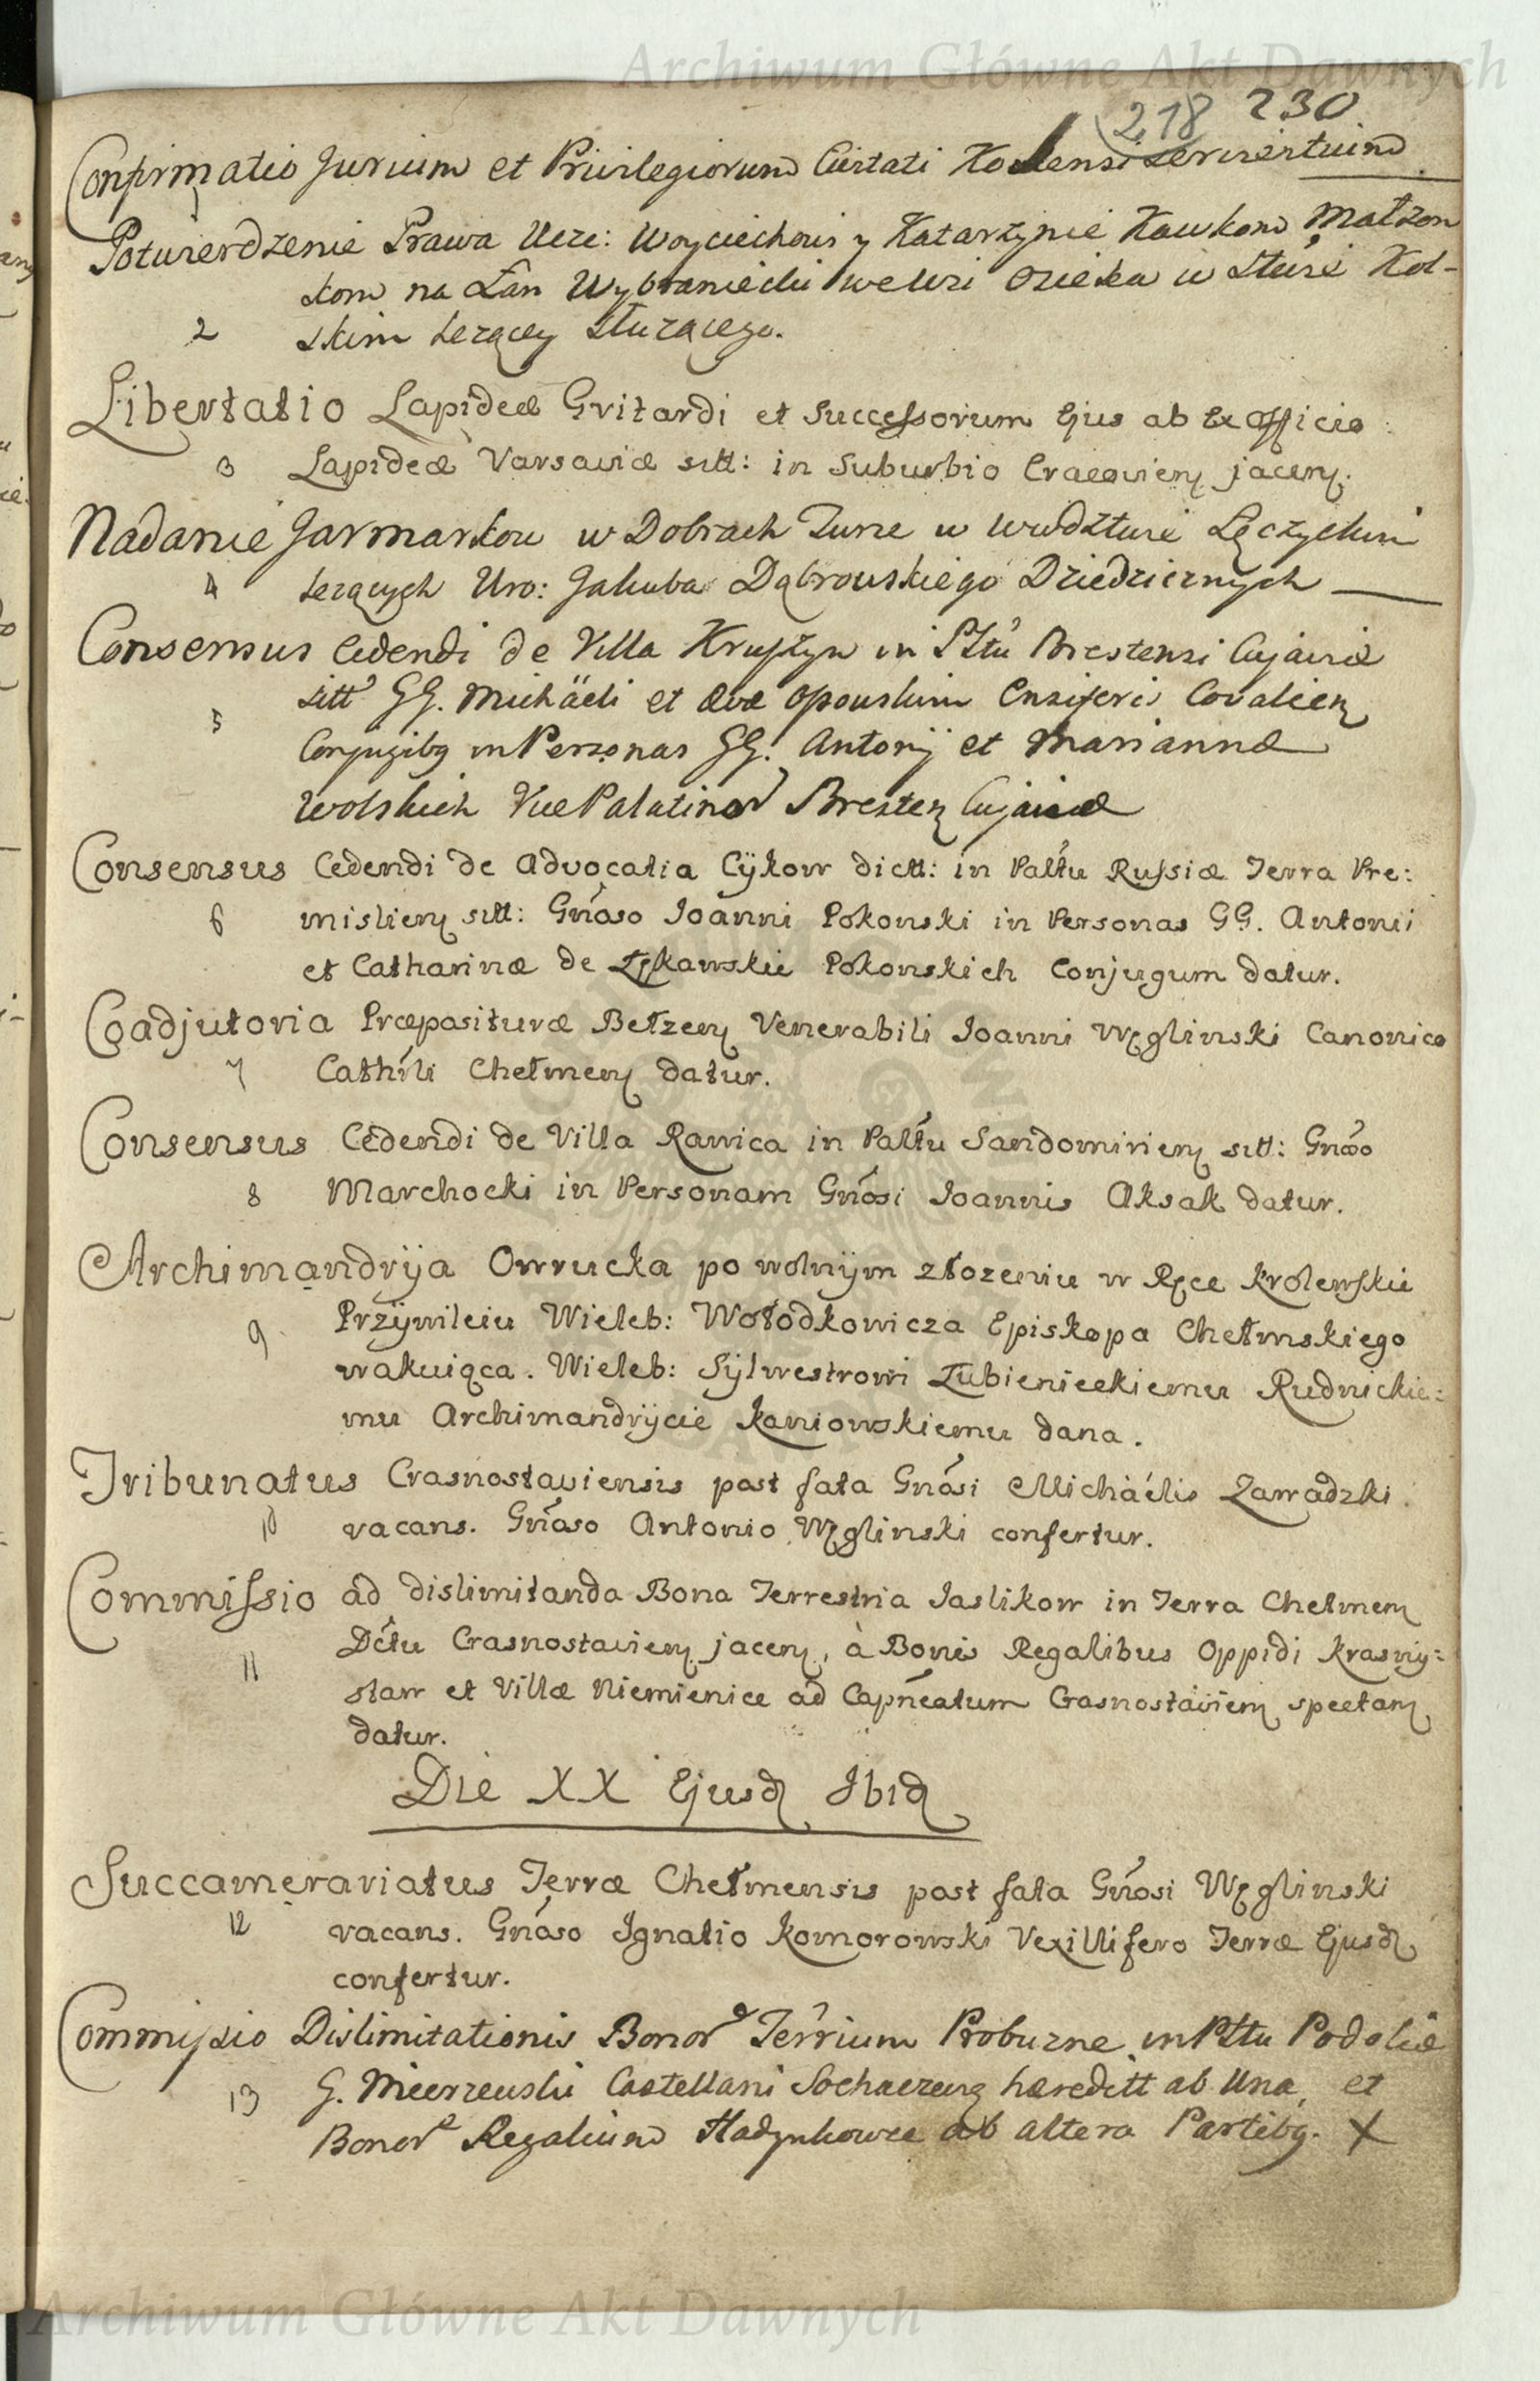 Archiwum Główne Akt Dawnych
218 230
Confirmatio Jurium et Privilegiorum Civitati Kolensi servientium
1
Potwierdzenie Prawa Ucze: Woyciechowi y Katarzynie Kawkom Małżon
kom na Łan Wybraniecki we Wsi Osieka w Sttwie Kol-
2 skim leżącey służącego.
Libertatio Lapideæ Gritardi et Successorum Ejus ab Ex officio
3 Lapideæ Varsaviæ sitt: in Suburbio Cracovien jacen.
Nadanie Jarmarkow w Dobrach Turze w Wwdztwie Łęczyckim
4 leżących Uro: Jakuba Dąbrowskiego Dziedzicznych
Consensus Cedendi de Villa Kruszyn in Plttu Brestensi Cujaviæ
sitt GG. Michäeli et Evæ Opowskim Ensiferis Covalien
5
Conjugibq in Personas GG. Antonij et Mariannæ
Wolskich Vice Palatinor Bresten Cujaviæ
Consensus Cedendi de Advocatia Cÿkow dictt: in Palttu Russiæ Terra Pre:
6 mislien sitt: Gnoso Joanni Pokonski in Personas GG. Antonii
et Catharinæ de Łękawskie Pokonskich Conjugum datur.
Coadjutoria Præpositurae Bełzen Venerabili Joanni Węglinski Canonico
7 Cathlli Chełmen datur.
Consensus Cedendi de Villa Rawica in Palttu Sandomirien sitt: Gnoso
8 Marchocki in Personam Gnosi Joannis Aksak datur.
Archimandryja Owrucka po wolnÿm złożeniu w Ręce Krolewskie
Przÿwileiu Wieleb: Wołodkowicza Episkopa Chełmskiego
9
wakuiąca. Wieleb: Sÿlwestrowi Łubienieckiemu Rudnickie:
mu Archimandrÿcie Kaniowskiemu dana.
Tribunatus Crasnostaviensis post fata Gnosi Michaëlis Zawadzki
10 vacans. Gnoso Antonio Węglinski confertur.
Commissio ad dislimitanda Bona Terrestria Jaslikow in Terra Chelmen
Dctu Crasnostavien jacen, à Bonis Regalibus Oppidi Krasnÿ=
11
staw et Villæ Niemienice ad Capneatum Crasnostavien spectan
datur.
Die XX Ejusd Ibid
Succamerariatus Terræ Chełmensis post fata Gnosi Węglinski
12 vacans. Gnoso Ignatio Komorowski Vexillifero Terræ Ejusd
confertur.
Commissio Dislimitationis Bonor Terrium Probuzne in Plttu Podoliæ
13 G. Mierzewski Castellani Sochaczen hæreditt ab Una, et
Bonor Regalium Hadynkowce ab altera Partibq. X
Archiwum Główne Akt Dawnych